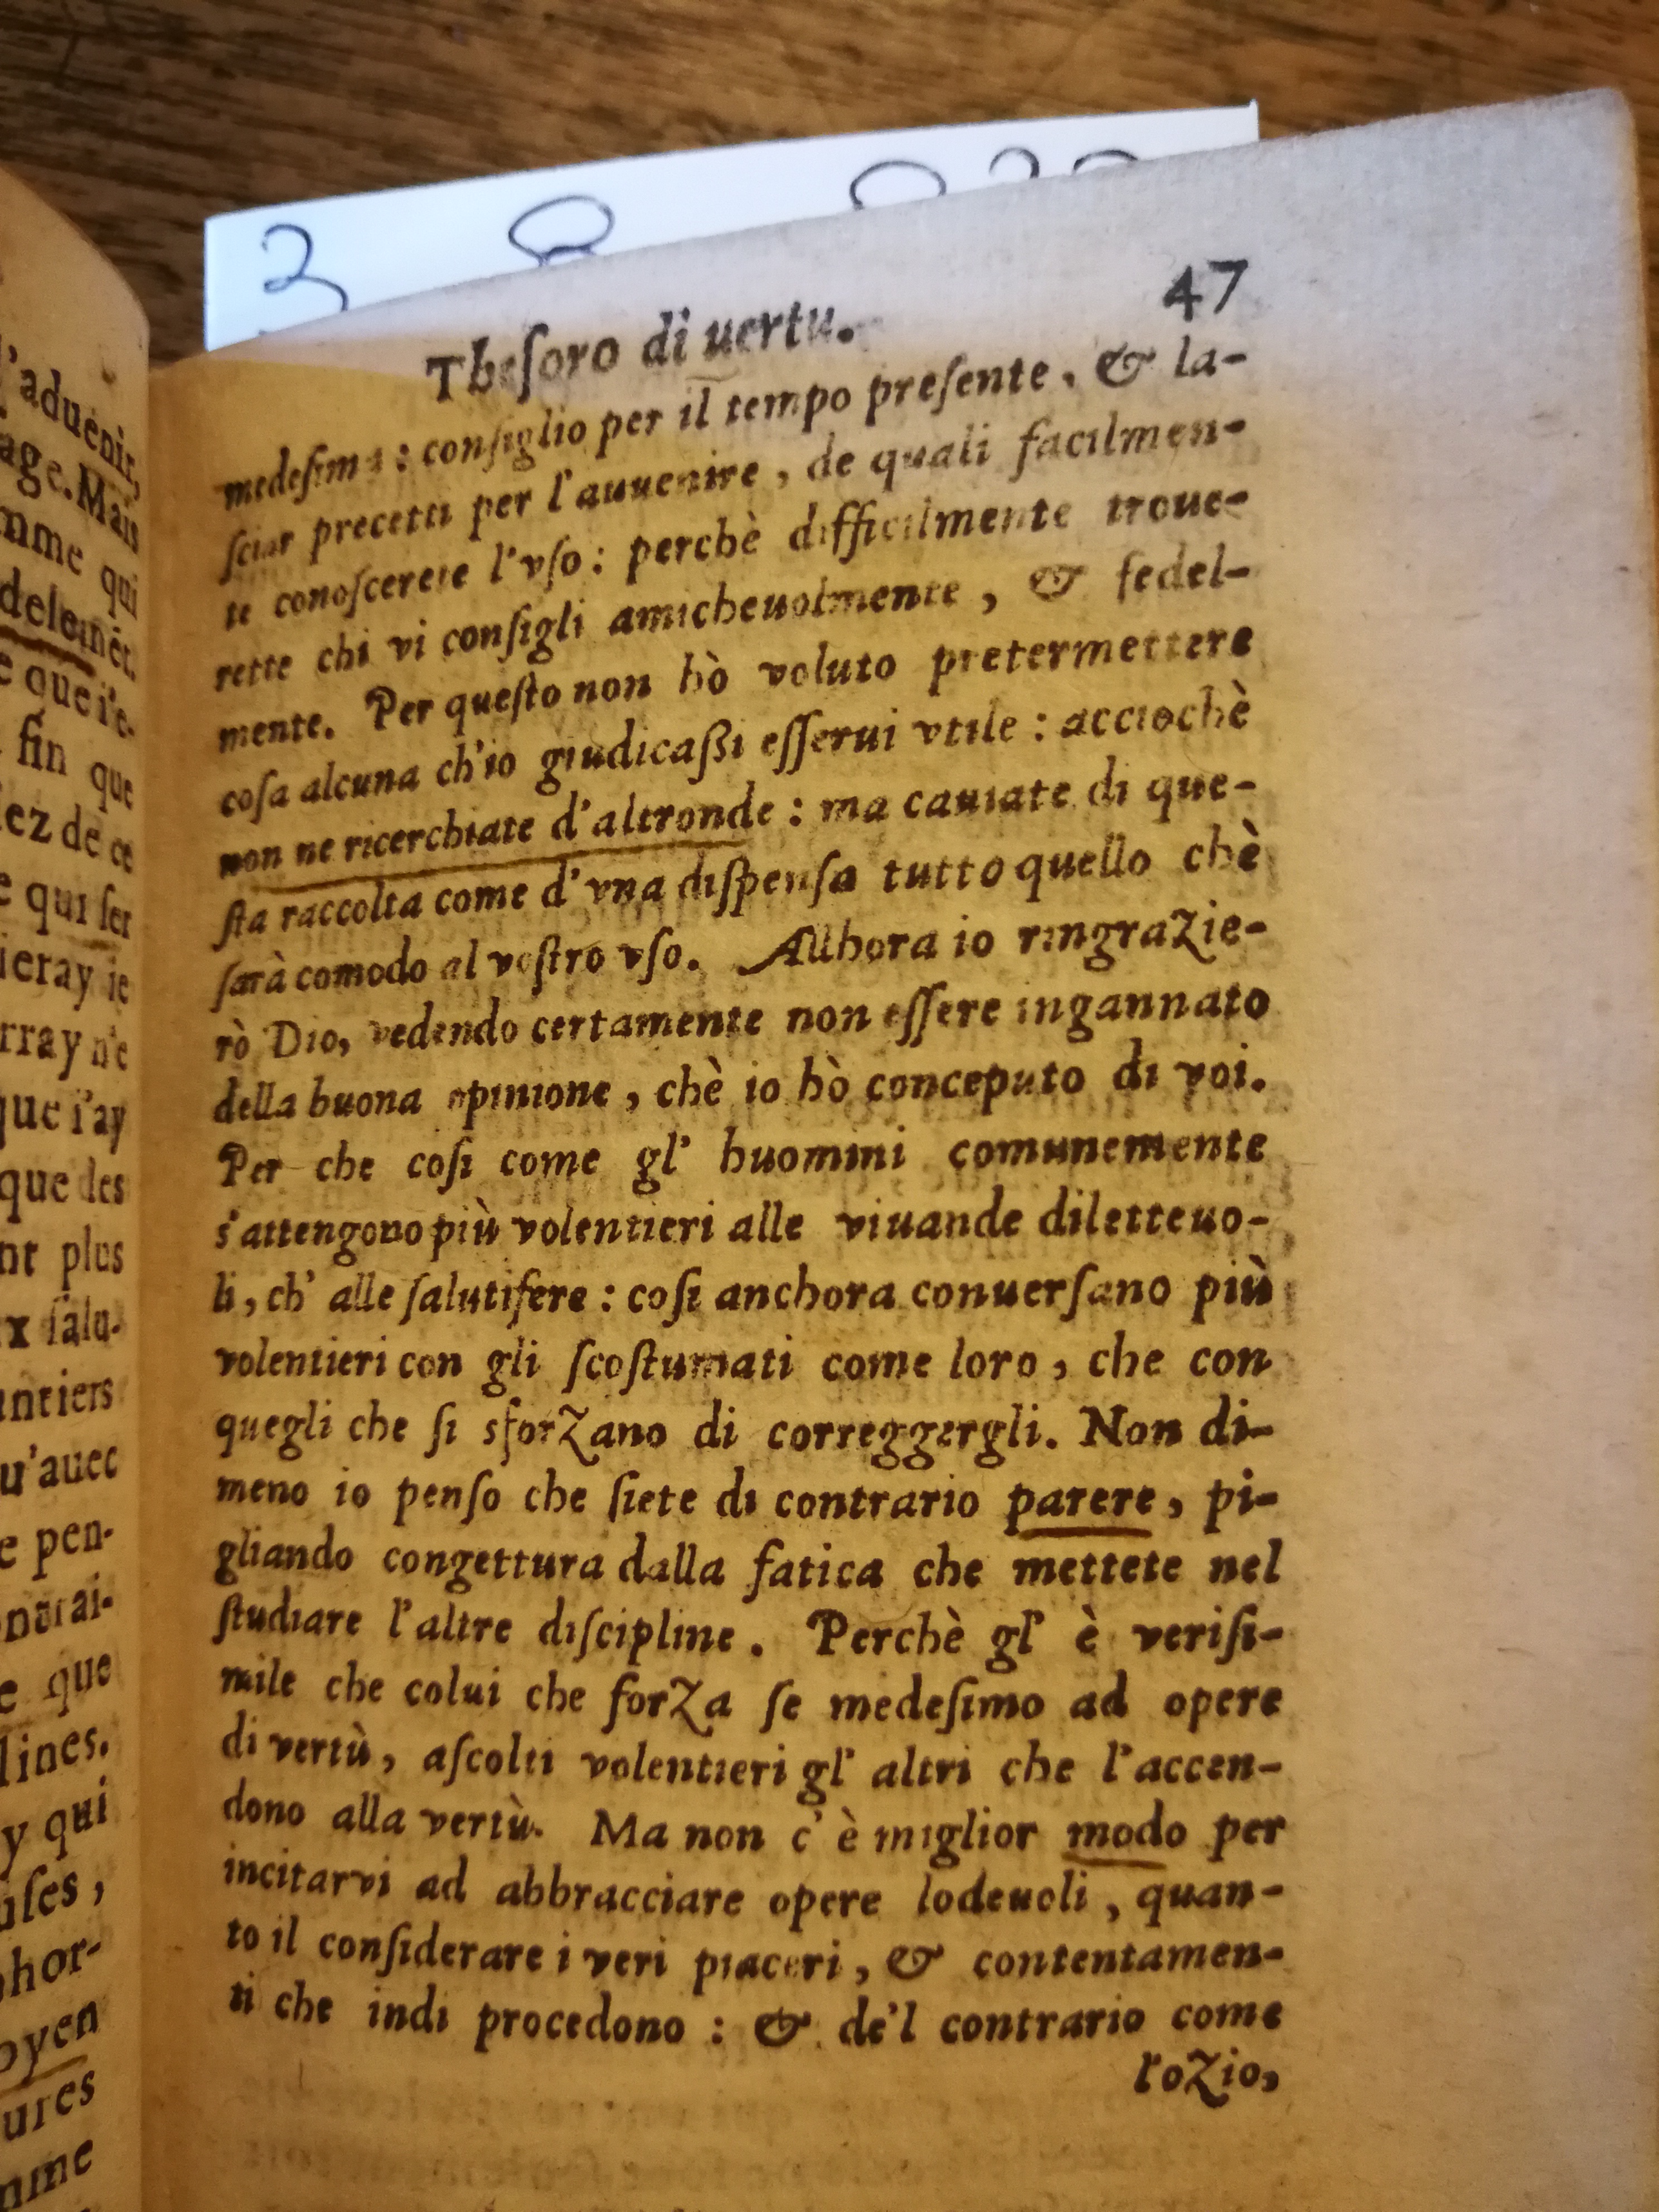 l'aduenir,
age. Mais
mme qui
delemẽt.
e que i'e-
fin que
ez de ce
e qui ſer
ieray ie
rray n'e
que i'ay
que des
nt plus
x ſalu-
antiers
u'auec
e pen-
que
lines.
y qui
uſes,
hor-
oyen
ures
mme
Theſoro di uertu.
47
medeſima : conſiglio per il tempo preſente, & la-
ſciar precetti per l'auuenire, de quali facilmen-
te conoſcerete l'vſo : perchè difficilmente troue-
rette chi vi conſigli amicheuolmente, & fedel-
mente. Per queſto non hò voluto pretermettere
coſa alcuna ch'io giudicaßi eſſerui vtile : acciochè
non ne ricerchiate d'altronde : ma cauiate di que-
ſta raccolta come d'vna diſpenſa tutto quello chè
ſarà comodo al voſtro vſo. Allhora io ringrazie-
rò Dio, vedendo certamente non eſſere ingannato
della buona opinione, chè io hò conceputo di voi.
Per che coſi come gl' huomini comunemente
s'attengono più volentieri alle viuande diletteuo-
li, ch' alle ſalutifere : coſi anchora conuerſano più
volentieri con gli ſcoſtumati come loro, che con
quegli che ſi sforzano di correggergli. Non di-
meno io penſo che ſiete di contrario parere, pi-
gliando congettura dalla fatica che mettete nel
ſtudiare l'altre diſcipline. Perchè gl' è veriſi-
mile che colui che forza ſe medeſimo ad opere
di vertù, aſcolti volentieri gl' altri che l'accen-
dono alla vertù. Ma non c' è miglior modo per
incitarvi ad abbracciare opere lodeuoli, quan-
to il conſiderare i veri piaceri, & contentamen-
ti che indi procedono : & de'l contrario come
l'ozio,